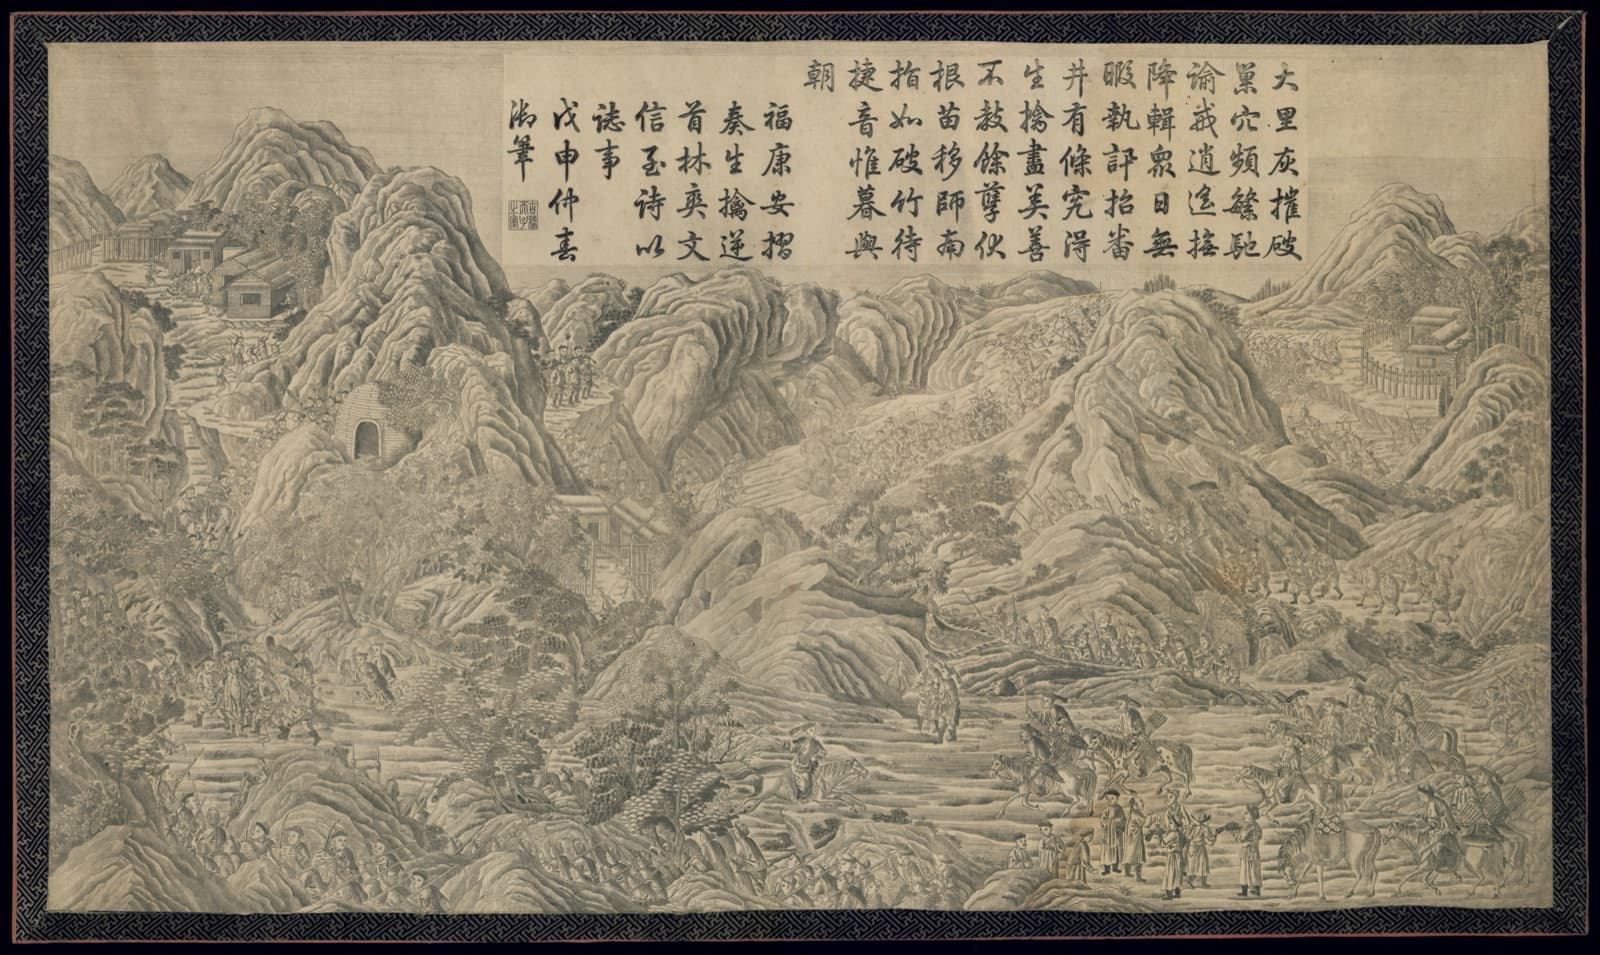 大里灰摧破
巢穴頻繁馳
諭戒逍遙撫
降輯衆日無
暇執訊招番
井有條究得
生擒盡美善
不教餘孽伏
根苗移師南
指如破竹待
捷音惟暮與
朝
福康安摺
奏生擒逆
首林爽文
信至詩以
誌事
戊申仲春
御筆
古稀天子之寶